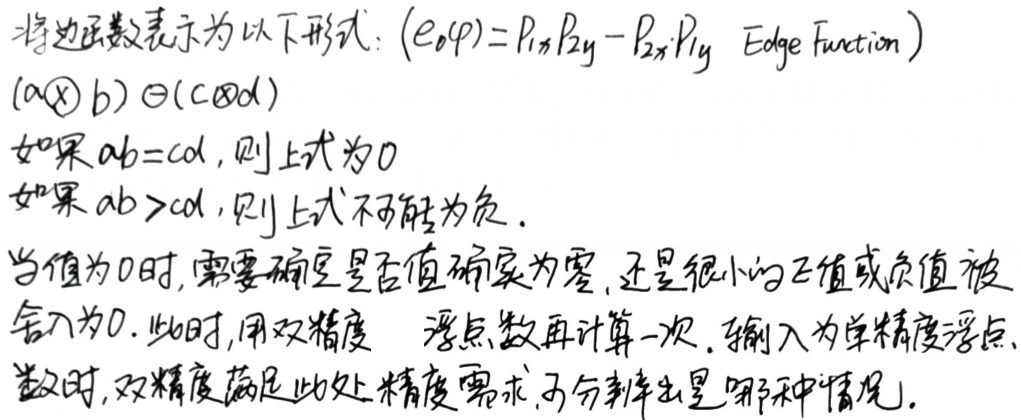 将边函数表示为以下形式: (e₀(p) = P₁ₓP₂y − P₂ₓ·P₁y Edge Function)
(a⊗b)⊖(c⊗d)
如果ab=cd,则上式为0
如果ab>cd,则上式不可能为负.
当值为0时,需要确定是否值确实为零,还是很小的正值或负值被
舍入为0.此时,用双精度 浮点数再计算一次.输入为单精度浮点、
数时,双精度满足此处精度需求,可分辨出是哪种情况.